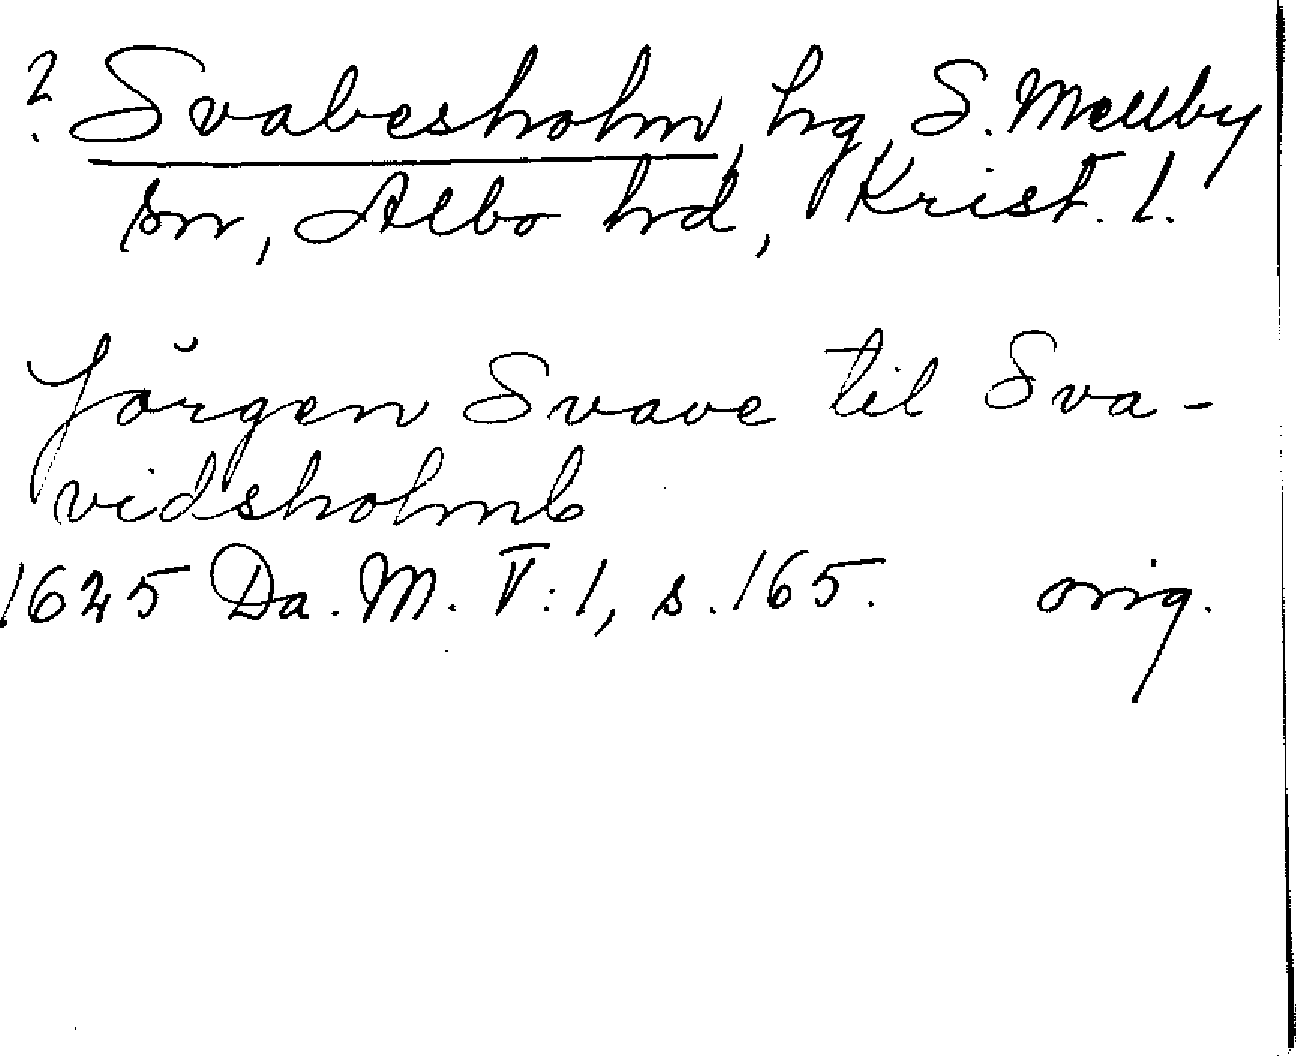 ? Svabesholm, hg, S. Mellby
sn, Albo hd, Krist. l.
Jörgen Svave til Sva-
vidsholmb
1645 Da. M. V: 1, s. 165. orig.